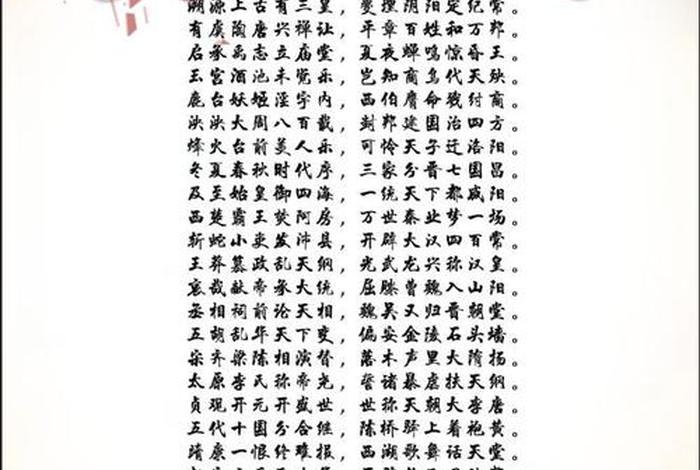 溯源上古有三皇，燮理阴阳定纪常。
有虞陶唐兴禅让，平章百姓和万邦。
启承禹志立庙堂，夏夜蝉鸣惊昏王。
玉宫酒池未览乐，岂知商鸟代天殃。
鹿台妖姬淫宇内，西伯膺命戮纣商。
泱泱大周八百载，封邦建国治四方。
烽火台前美人乐，可怜天子迁洛阳。
冬夏春秋时代序，三家分晋七国昌。
及至始皇御四海，一统天下都咸阳。
西楚霸王焚阿房，万世秦业梦一场。
斩蛇小吏发沛县，开辟大汉四百常。
王莽篡政乱天纲，光武龙兴称汉皇。
哀哉献帝承大统，屈膝曹魏入山阳。
丞相祠前论天相，魏吴又归晋朝堂。
五胡乱华天下变，偏安金陵石头墙。
宋齐梁陈相演替，落木声里大隋扬。
太原李氏称帝尧，誓诸暴虐扶天纲。
贞观开元开盛世，世称天朝大李唐。
五代十国分合继，陈桥驿上着袍黄。
靖康一恨终难报，西湖歌舞话天堂。